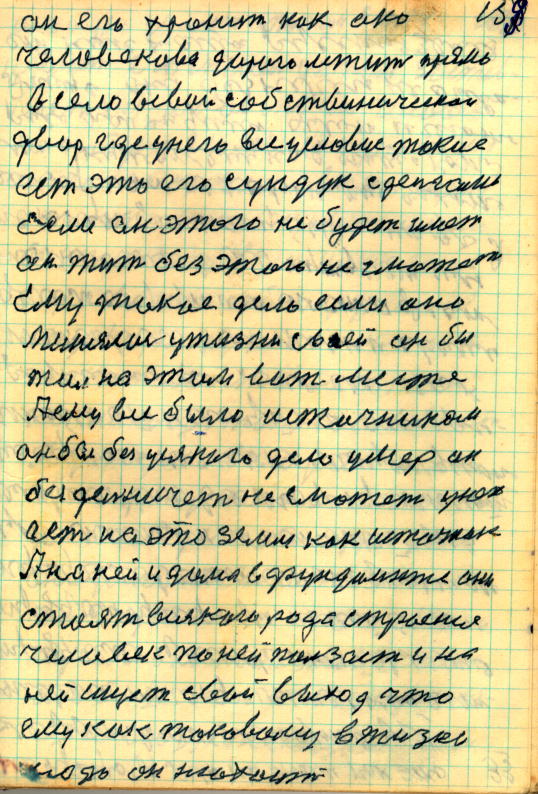 он его хронит как око 13
человекова дорого летит прямь
в село в свой собственический
двор где унего все условие такие
ест это его сундук сденгами
Если он этого не будет имет
он жит без этого не сможет
Ему такое дело если оно
менялос ужизни своей он бы
жил на этим вот месте
Аему все было источником
он бы без усякого дела умер он
без
ает на это земли как источник
Ана ней и дома вфундаменте они
стоят всякого рода строения
человек поней ползает и на
ней ищет свой выход что
ему как таковому в жизни
надо он находит